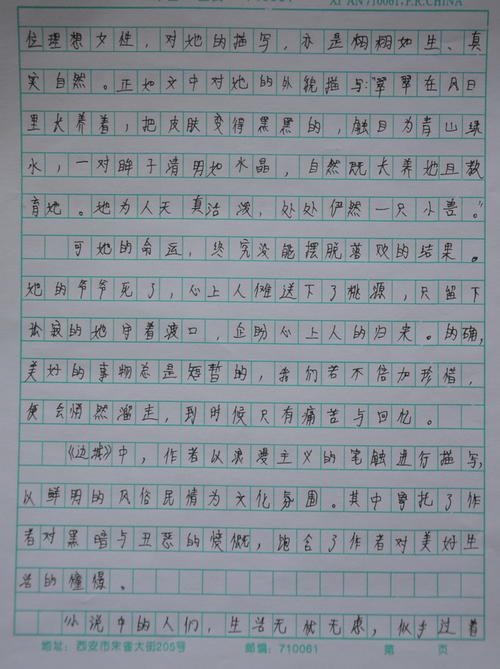 XI'AN710061,P.R.CHINA
位理想女性，对她的描写，亦是栩栩如生、真
实自然。正如文中对她的外貌描写："翠翠在风日
里长养着，把皮肤变得黑黑的，触目为青山绿
水，一对眸子清明如水晶，自然既长养她且教
育她。她为人天真活泼，处处俨然一只小兽。"
可她的命运，终究没能摆脱落败的结果。
她的爷爷死了，心上人傩送下了桃源，只留下
孤寂的她守着渡口，企盼心上人的归来。的确，
美好的事物总是短暂的，我们若不倍加珍惜，
便会悄然溜走，到时候只有痛苦与回忆。
《边城》中，作者以浪漫主义的笔触进行描写，
以鲜明的风俗民情为文化氛围。其中寄托了作
者对黑暗与丑恶的愤慨，饱含了作者对美好生
活的憧憬。
小说中的人们，生活无忧无虑，似乎过着
地址：西安市朱雀大街205号 邮编：710061 第 页